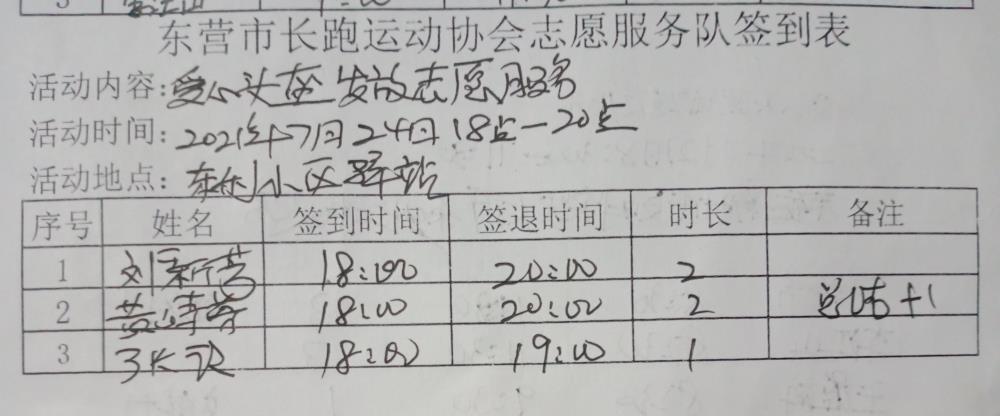 东营市长跑运动协会志愿服务队签到表
活动内容:爱心头盔发放志愿服务
活动时间:2021年7月24日18点-20点
活动地点:小区驿站
序号 姓名 签到时间 签退时间 时长 备注
1 刘新营 18:00 20:00 2
2 18:00 20:00 2 +1
3 18:00 19:00 1